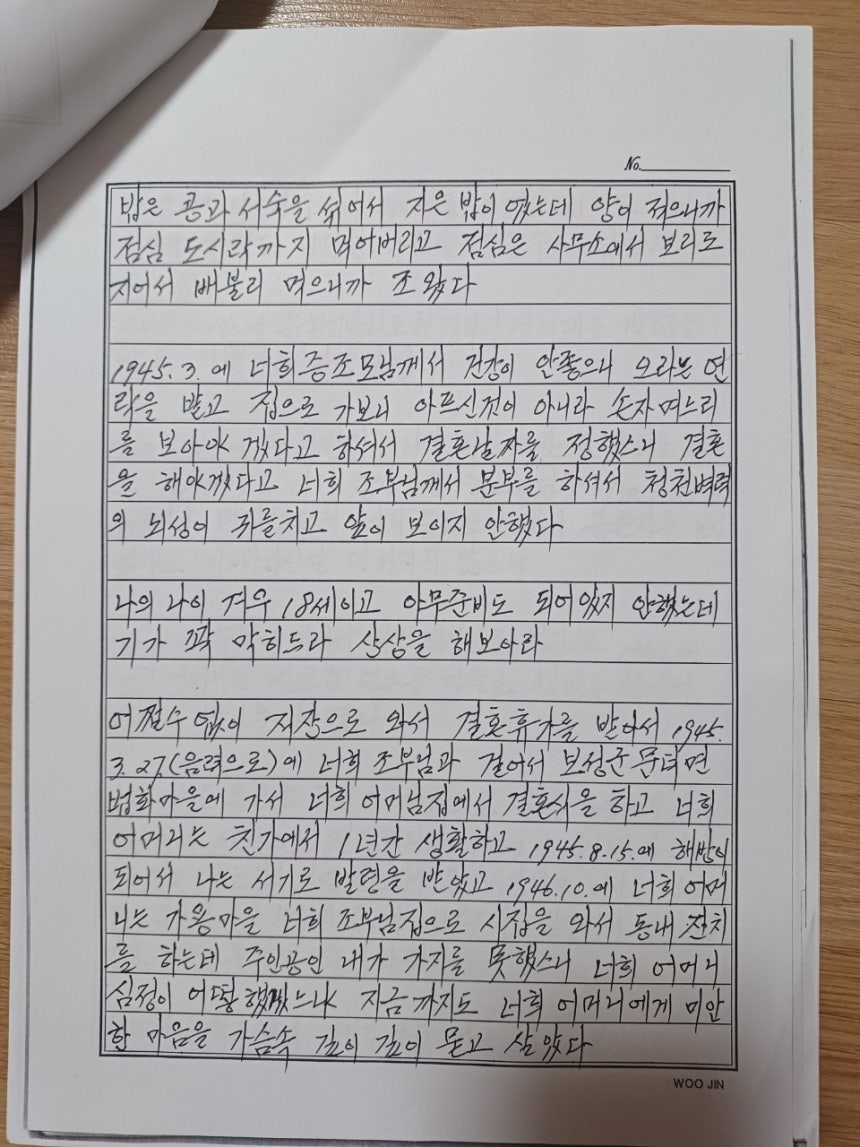 No.
밥은 콩과 서숙을 섞어서 지은 밥이였는데 양이 적으니까
점심 도시락까지 먹어버리고 점심은 사무소에서 보리로
지어서 배불리 먹으니까 조왔다
1945.3.에 너희증조모님께서 건강이 안좋으니 오라는 연
락을 받고 집으로 가보니 아프신것이 아니라 손자며느리
를 보아야 겠다고 하셔서 결혼날자를 정했스니 결혼
을 해야겠다고 너희 조부님께서 분부를 하셔서 청천벽력
의 뇌성이 귀를치고 앞이 보이지 안했다
나의 나이 겨우 18세이고 아무준비도 되어있지 안했는데
기가 꽉 막히드라 상상을 해보아라
어쩔수 없이 직장으로 와서 결혼휴가를 받아서 1945.
3.27(음력으로)에 너희 조부님과 걸어서 보성군 문덕면
법화마을에 가서 너희 어머님집에서 결혼식을 하고 너희
어머니는 친가에서 1년간 생활하고 1945.8.15.에 해방이
되어서 나는 서기로 발령을 받았고 1946.10.에 너희 어머
니는 가용마을 너희 조부님집으로 시집을 와서 동내 잔치
를 하는데 주인공인 내가 가지를 못했스니 너희 어머니
심정이 어떻했겠느냐 지금까지도 너희 어머니에게 미안
한 마음을 가슴속 깊이 깊이 묻고 살았다
WOO JIN